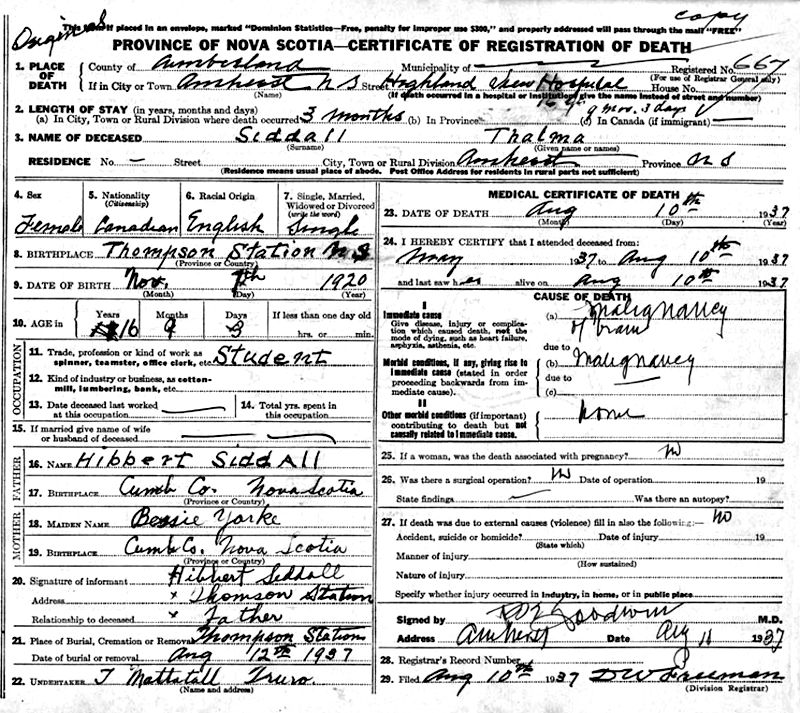 copy
This form if placed in an envelope, marked "Dominion Statistics—Free, penalty for improper use $300," and properly addressed will pass through the mail "FREE"
Original
PROVINCE OF NOVA SCOTIA—CERTIFICATE OF REGISTRATION OF DEATH
1. PLACE OF DEATH County of Cumberland Municipality of Registered No. 667
(For use of Registrar General only)
If in City or Town Amherst N S Street Highland View Hospital House No.
(Name) (If death occurred in a hospital or institution, give the name instead of street and number)
2. LENGTH OF STAY (in years, months and days) 16 yr 9 mos. 3 days
(a) In City, Town or Rural Division where death occurred 3 months (b) In Province (c) In Canada (if immigrant)
3. NAME OF DECEASED Siddall Thalma
(Surname) (Given name or names)
RESIDENCE No. — Street City, Town or Rural Division Amherst Province N S
(Residence means usual place of abode. Post Office Address for residents in rural parts not sufficient)
4. Sex 5. Nationality (Citizenship) 6. Racial Origin 7. Single, Married, Widowed or Divorced (write the word)
Female Canadian English Single
8. BIRTHPLACE Thompson Station N S
(Province or Country)
9. DATE OF BIRTH Nov. 7th 1920
(Month) (Day) (Year)
10. AGE in Years Months Days If less than one day old
16 9 3 hrs. or min.
OCCUPATION
11. Trade, profession or kind of work as spinner, teamster, office clerk, etc. Student
12. Kind of industry or business, as cotton-mill, lumbering, bank, etc.
13. Date deceased last worked at this occupation 14. Total yrs. spent in this occupation
15. If married give name of wife or husband of deceased
FATHER
16. NAME Hibbert Siddall
17. BIRTHPLACE Cumb Co. Nova Scotia
(Province or Country)
MOTHER
18. MAIDEN NAME Bessie Yorke
19. BIRTHPLACE Cumb Co. Nova Scotia
(Province or Country)
20. Signature of informant Hibbert Siddall
Address × Thomson Station
Relationship to deceased × Father
21. Place of Burial, Cremation or Removal Thompson Station
Date of burial or removal Aug 12th 1937
22. UNDERTAKER T Mattatall Truro.
(Name and address)
MEDICAL CERTIFICATE OF DEATH
23. DATE OF DEATH Aug 10th 1937
(Month) (Day) (Year)
24. I HEREBY CERTIFY that I attended deceased from:
May 1937 to Aug 10th 1937
and last saw her alive on Aug 10th 1937
CAUSE OF DEATH
I
Immediate cause
Give disease, injury or complication which caused death, not the mode of dying, such as heart failure, asphyxia, asthenia, etc.
(a) malignancy of brain
due to
Morbid conditions, if any, giving rise to immediate cause (stated in order proceeding backwards from immediate cause).
(b) Malignancy
due to
(c)
II
Other morbid conditions (if important) contributing to death but not causally related to immediate cause.
none
25. If a woman, was the death associated with pregnancy? No
26. Was there a surgical operation? No Date of operation 19
State findings Was there an autopsy?
27. If death was due to external causes (violence) fill in also the following:— No
Accident, suicide or homicide? Date of injury 19
(State which)
Manner of injury
(How sustained)
Nature of injury
Specify whether injury occurred in industry, in home, or in public place
Signed by Goodwin M.D.
Address Amherst Date Aug 11 1937
28. Registrar's Record Number
29. Filed Aug 10th 1937 D W Freeman
(Division Registrar)